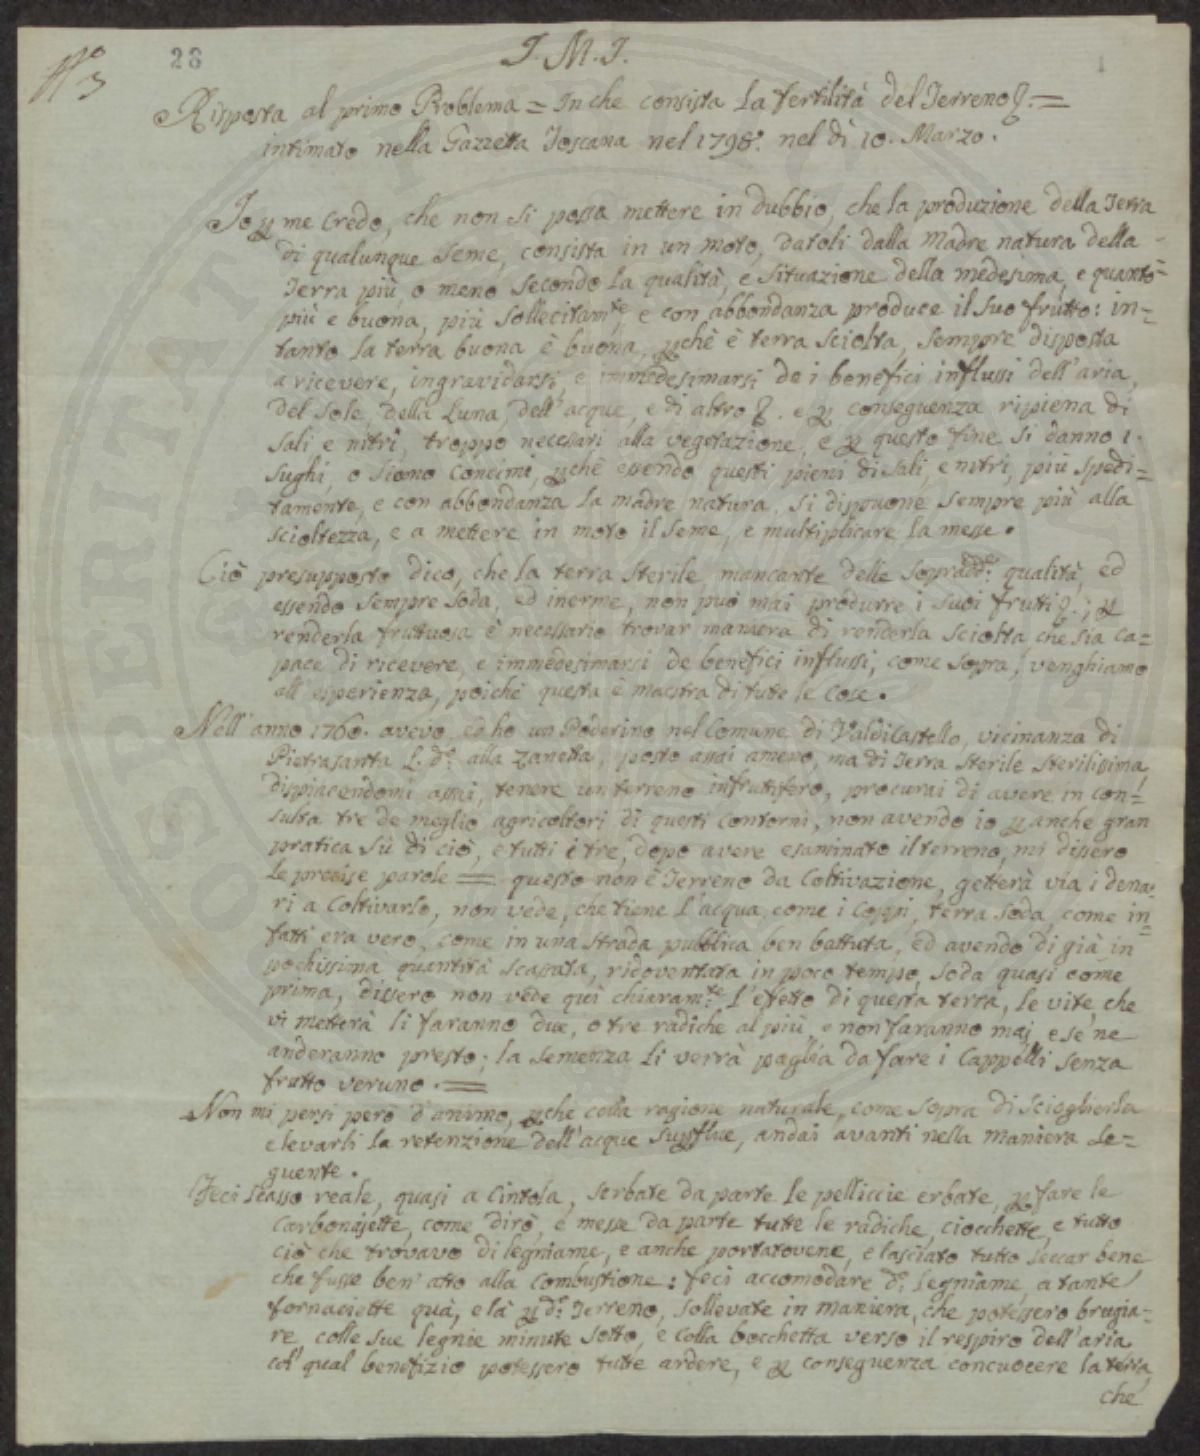 N.º 3
28
J. M. J.
1
Risposta al primo Problema = In che consista La fertilità del Terreno &. =
intimato nella Gazzetta Toscana nel 1798. nel dì 10. Marzo.
Io p me Credo, che non si possa mettere in dubbio, che la produzione della Terra
di qualunque Seme, consista in un moto, datoli dalla Madre natura della
Terra più, o meno Secondo la qualità, e Situazione della medesima, e quanto
più e buona, più Sollecitam.te e con abbondanza produce il Suo frutto: in=
tanto la terra buona è buona, pchè è terra Sciolta, Sempre disposta
a ricevere, ingravidarsi, e immedesimarsi de i benefici influssi dell'aria,
del Sole, della Luna, dell'acque, e di altro &. e p conseguenza ripiena di
Sali e nitri, troppo necessari alla vegetazione, e p questo fine Si danno i
Sughi, o Siano Concimi, pchè essendo questi pieni di Sali, e nitri, più Spedi=
tamente, e con abbondanza la madre natura, Si dispuone Sempre più alla
Scioltezza, e a mettere in moto il Seme, e multiplicare la messe.
Ciò presupposto dico, che la terra Sterile, mancante delle Sopradd.e qualità, ed
essendo Sempre Soda, ed inerme, non può mai produrre i Suoi frutti &.; p
renderla fruttuosa è necessario trovar maniera di renderla Sciolta, che Sia Ca=
pace di ricevere, e immedesimarsi de benefici influssi, come Sopra, venghiamo
all'esperienza, poichè questa è maestra di tute le Cose.
Nell'anno 1760. avevo, ed ho un Poderino nel Comune di Valdicastello, vicinanza di
Pietrasanta L. d.º alla Zanetta, posto assai ameno, ma di Terra Sterile Sterilissima,
dispiacendomi assai, tenere un terreno infruttifero, procurai di avere in con=
sulta tre de meglio agricoltori di questi Contorni, non avendo io p anche gran
pratica Sù di ciò, e tutti e tre, dopo avere esaminato il terreno, mi dissero
le precise parole = questo non è Terreno da Coltivazione, getterà via i dena=
ri a Coltivarlo, non vede, che tiene l'acqua, come i Coppi, terra Soda, come in
fatti era vero, come in una Strada pubblica ben battuta, ed avendo di già in
pochissima quantità Scassata, ridoventata in poco tempo, Soda quasi come
prima, dissero non vede quì chiaram.te l'effetto di questa terra, le vite, che
vi metterà li faranno due, o tre radiche al più, e non faranno mai, e Se ne
anderanno presto; la Semenza li verrà paglia da fare i Cappelli Senza
frutto veruno. =
Non mi persi però d'animo, pche colla ragione naturale, come Sopra di Scioglierla
e levarli la retenzione dell'acque Supflue, andai avanti nella maniera Se=
guente.
Feci Scasso reale, quasi a Cintola, Serbate da parte le pelliccie erbate, p fare le
Carbonajette, come dirò, e messe da parte tutte le radiche, Ciocchette, e tutto
ciò che trovavo di legniame, e anche portatovene, e lasciato tutto Seccar bene
che fusse ben' atto alla Combustione: feci accomodare d.º legniame, a tante
fornaciette quà, e là p d.º Terreno, Sollevate in maniera, che potessero brugia=
re, colle Sue legnie minute Sotto, e colla bocchetta verso il respiro dell'aria
col qual benefizio potessero tutte ardere, e p conseguenza concuocere la terra,
che